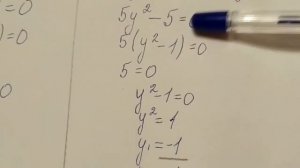 =0
)=0
0
5y² − 5 =
5(y² − 1) = 0
5 = 0
y² − 1 = 0
y² = 1
y₁ = −1